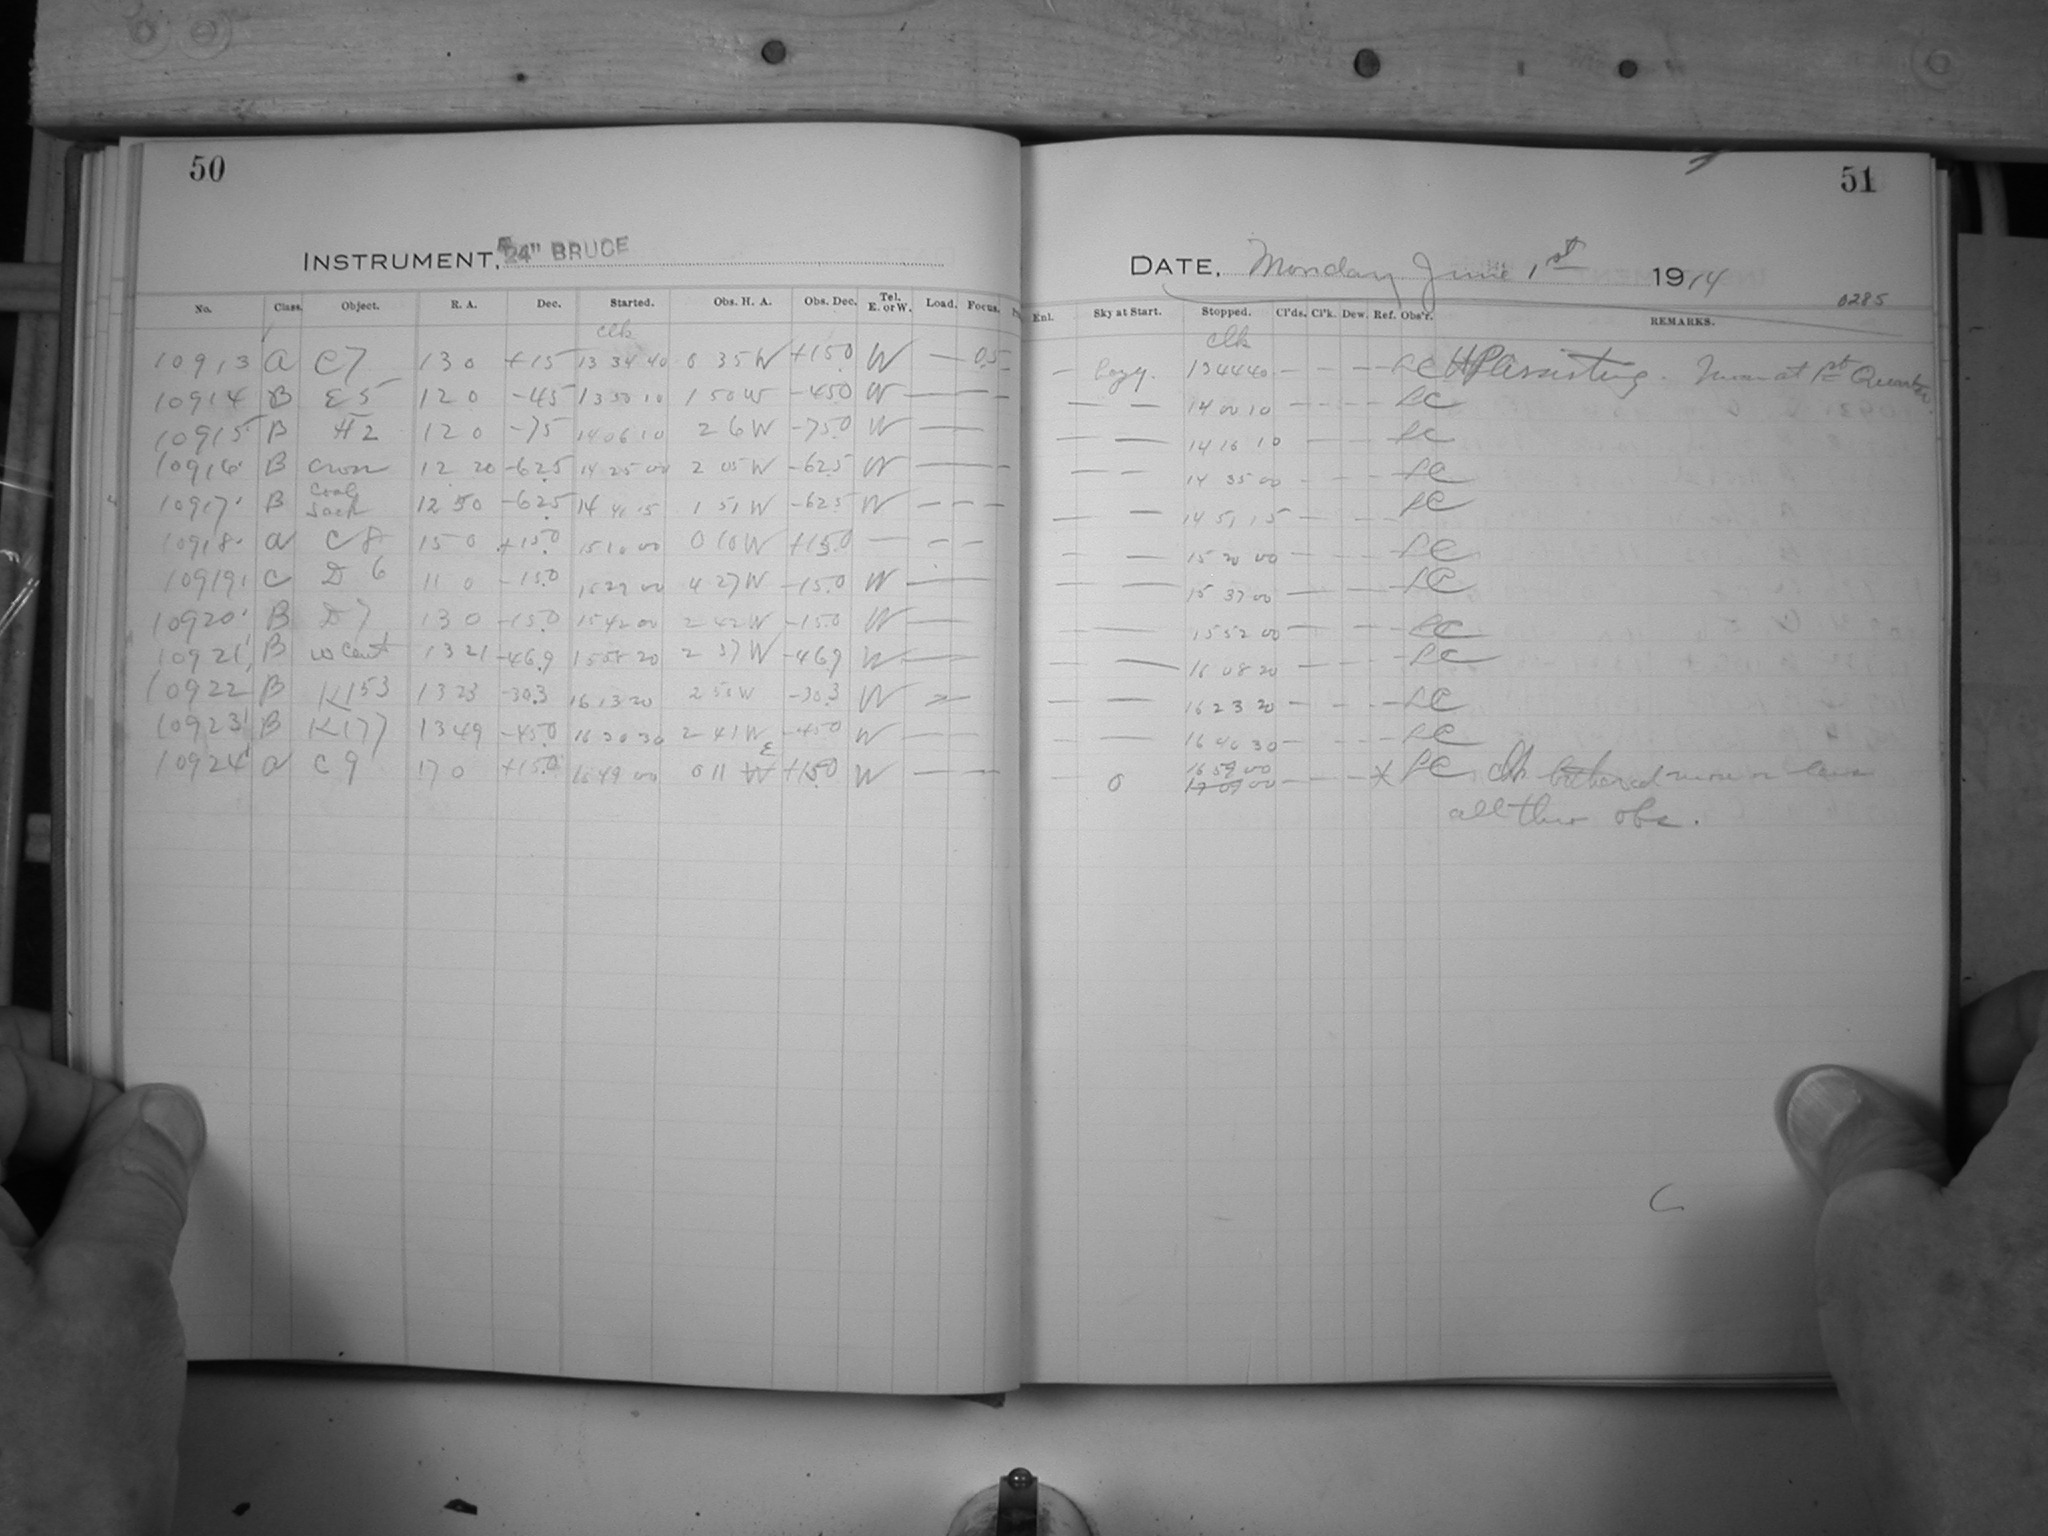 50
INSTRUMENT, 24" BRUCE
No. Class. Object. R. A. Dec. Started. Obs. H. A. Obs. Dec. Tel. E. or W. Load. Focus.
clk
10913 A C7 13 0 +15 13 34 40 0 35 W +15.0 W — 0.5
10914 B E5 12 0 -45 13 50 10 1 50 W -45.0 W — —
10915 B H2 12 0 -75 14 06 10 2 6 W -75.0 W —
10916 B Cross 12 20 -62.5 14 25 00 2 05 W -62.5 W —
10917 B Coal Sack 12 50 -62.5 14 41 15 1 51 W -62.5 W — — —
10918 A C8 15 0 +15.0 15 10 00 0 10 W +15.0 — — —
10919 C D6 11 0 -15.0 15 27 00 4 27 W -15.0 W —
10920 B D7 13 0 -15.0 15 42 00 2 42 W -15.0 W —
10921 B w Cent 13 21 -46.9 15 58 20 2 37 W -46.9 W —
10922 B K153 13 23 -30.3 16 13 20 2 50 W -30.3 W —
10923 B K177 13 49 -45.0 16 30 30 2 41 W -45.0 W — —
10924 A C9 17 0 +15.0 16 49 00 0 11 W E +15.0 W — —
51
DATE, Monday June 1st 1914
0285
Enl. Sky at Start. Stopped. Cl'ds. Cl'k. Dew. Ref. Obs'r. REMARKS.
clk
— hazy. 13 44 40 — — — — LC HP assisting. Moon at 1st Quarter.
— — 14 00 10 — — — — LC
— — 14 16 10 — — — — LC
— — 14 35 00 — — — — LC
— — 14 51 15 — — — — LC
— — 15 20 00 — — — — LC
— — 15 37 00 — — — — LC
— — 15 52 00 — — — — LC
— — 16 08 20 — — — — LC
— — 16 23 20 — — — — LC
— — 16 40 30 — — — — LC
16 59 00
— 0 17 09 00 — — — X LC clk bothered more or less
all these obs.